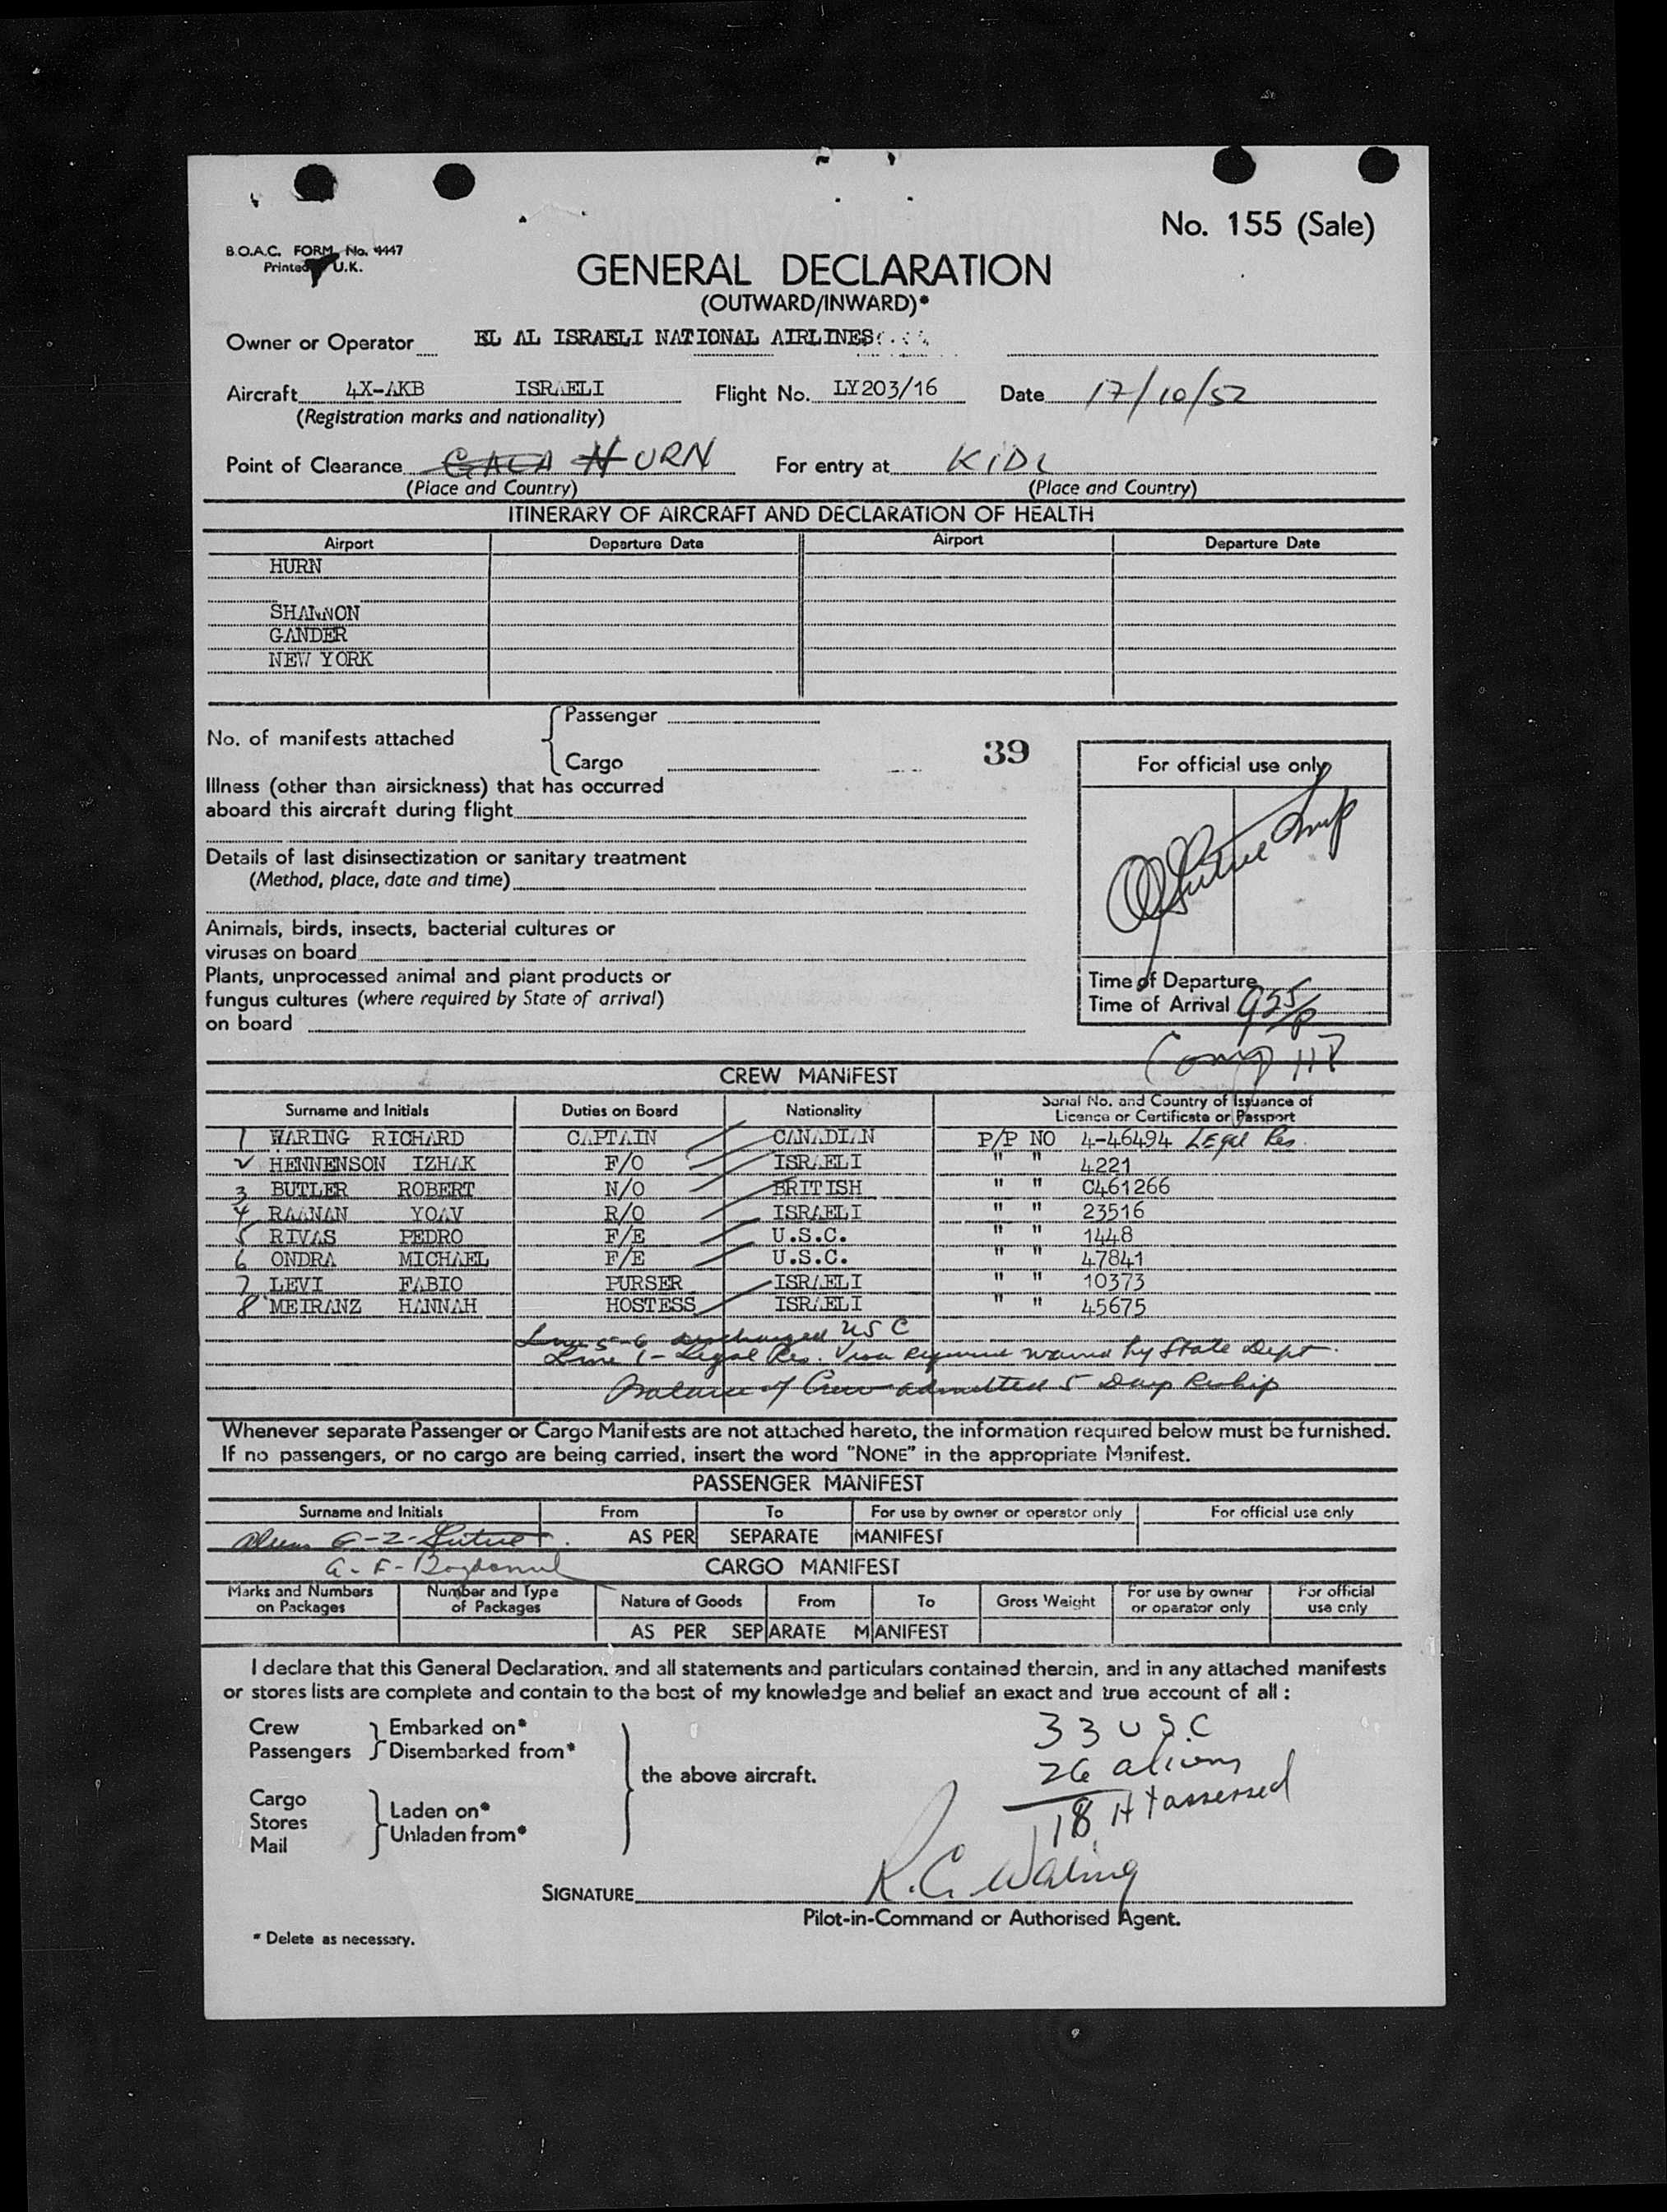 No. 155 (Sale)
B.O.A.C. FORM No. 4447
Printed U.K.
GENERAL DECLARATION
(OUTWARD/INWARD)*
Owner or Operator EL AL ISRAELI NATIONAL AIRLINES
Aircraft 4X-AKB ISRAELI Flight No. LY203/16 Date 17/10/52
(Registration marks and nationality)
Point of Clearance HURN For entry at KIDL
(Place and Country) (Place and Country)
ITINERARY OF AIRCRAFT AND DECLARATION OF HEALTH
Airport Departure Date Airport Departure Date
HURN
SHANNON
GANDER
NEW YORK
No. of manifests attached
Passenger
Cargo
39
Illness (other than airsickness) that has occurred
aboard this aircraft during flight
Details of last disinsectization or sanitary treatment
(Method, place, date and time)
Animals, birds, insects, bacterial cultures or
viruses on board
Plants, unprocessed animal and plant products or
fungus cultures (where required by State of arrival)
on board
For official use only
Time of Departure
Time of Arrival 925/p
CREW MANIFEST
Surname and Initials Duties on Board Nationality Serial No. and Country of Issuance of
Licence or Certificate or Passport
1 WARING RICHARD CAPTAIN CANADIAN P/P NO 4-46494 Legal Res.
2 HENNENSON IZHAK F/O ISRAELI " " 4221
3 BUTLER ROBERT N/O BRITISH " " C461266
4 RAANAN YOAV R/O ISRAELI " " 23516
5 RIVAS PEDRO F/E U.S.C. " " 1448
6 ONDRA MICHAEL F/E U.S.C. " " 47841
7 LEVI FABIO PURSER ISRAELI " " 10373
8 MEIRANZ HANNAH HOSTESS ISRAELI " " 45675
Line 5-6 discharged USC
Line 1 - Legal Res. Visa by State Dept.
Balance of Crew admitted 5 Day
Whenever separate Passenger or Cargo Manifests are not attached hereto, the information required below must be furnished.
If no passengers, or no cargo are being carried, insert the word "NONE" in the appropriate Manifest.
PASSENGER MANIFEST
Surname and Initials From To For use by owner or operator only For official use only
AS PER SEPARATE MANIFEST
CARGO MANIFEST
Marks and Numbers on Packages Number and Type of Packages Nature of Goods From To Gross Weight For use by owner or operator only For official use only
AS PER SEPARATE MANIFEST
I declare that this General Declaration, and all statements and particulars contained therein, and in any attached manifests
or stores lists are complete and contain to the best of my knowledge and belief an exact and true account of all :
Crew
Passengers
Embarked on*
Disembarked from*
Cargo
Stores
Mail
Laden on*
Unladen from*
the above aircraft.
33 USC
26 aliens
18 Ht assessed
SIGNATURE R.C. Waring
Pilot-in-Command or Authorised Agent.
* Delete as necessary.